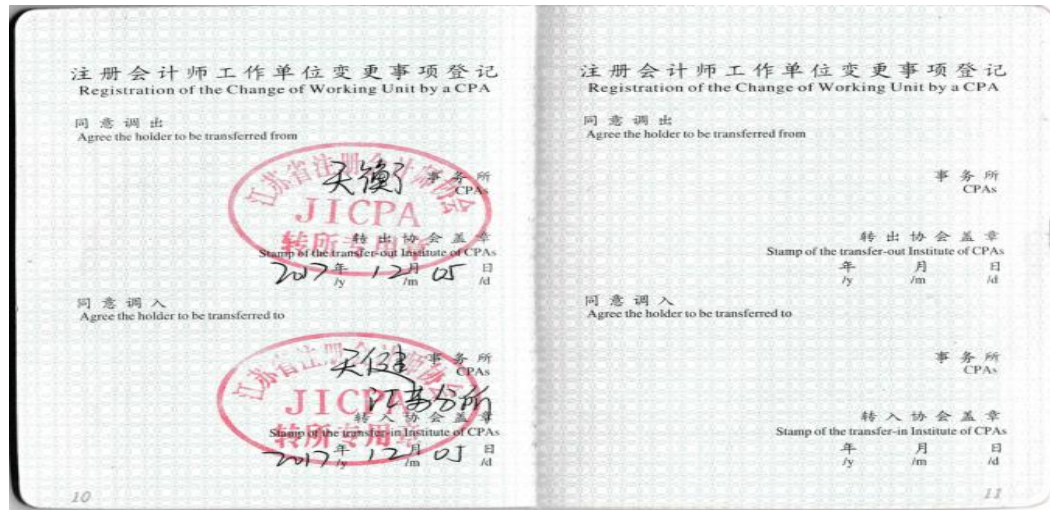 注册会计师工作单位变更事项登记
Registration of the Change of Working Unit by a CPA
同意调出
Agree the holder to be transferred from
天衡 事务所
CPAs
江苏省注册会计师协会
JICPA
转所专用章
转出协会盖章
Stamp of the transfer-out Institute of CPAs
2017年 12月 05日
/y /m /d
同意调入
Agree the holder to be transferred to
天健 事务所
CPAs
江苏分所
江苏省注册会计师协会
JICPA
转所专用章
转入协会盖章
Stamp of the transfer-in Institute of CPAs
2017年 12月 05日
/y /m /d
10
注册会计师工作单位变更事项登记
Registration of the Change of Working Unit by a CPA
同意调出
Agree the holder to be transferred from
事务所
CPAs
转出协会盖章
Stamp of the transfer-out Institute of CPAs
年 月 日
/y /m /d
同意调入
Agree the holder to be transferred to
事务所
CPAs
转入协会盖章
Stamp of the transfer-in Institute of CPAs
年 月 日
/y /m /d
11